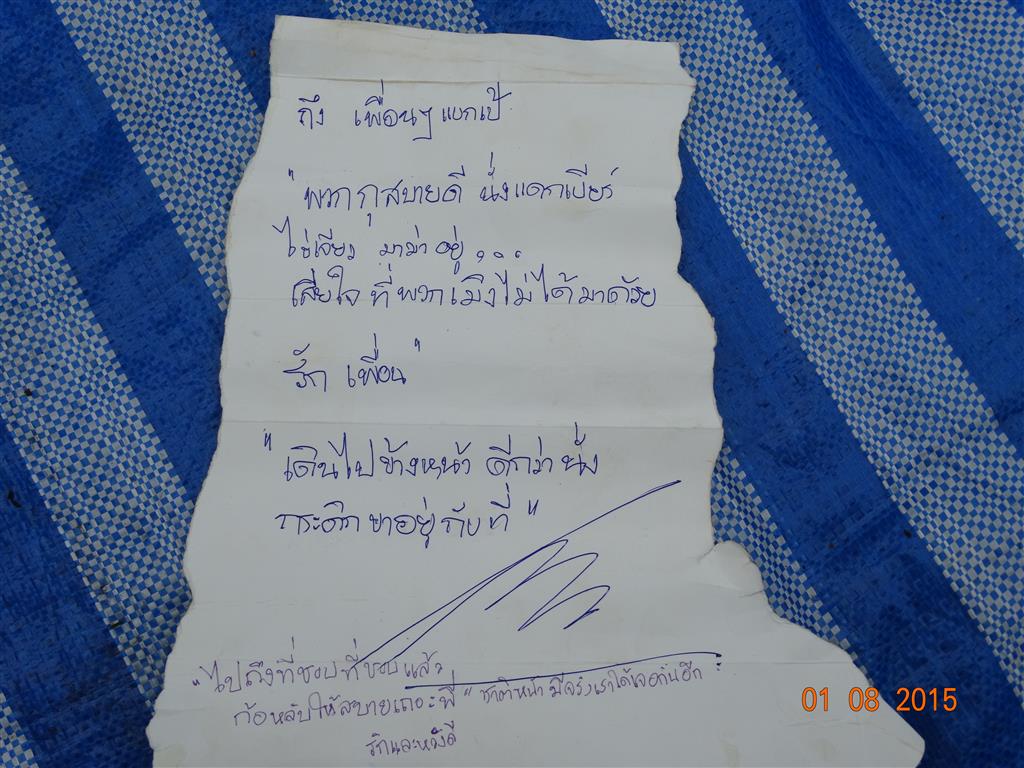 ถึง เพื่อนๆ แบกเป้
"พวกกุสบายดี นั่งแดกเบียร์
ไข่เจียว มาม่า อยู่...
เสียใจ ที่พวกเมิงไม่ได้มาด้วย
รัก เพื่อน"
"เดินไปข้างหน้า ดีกว่า นั่ง
กระดิก ขาอยู่ กับ ที่"
"ไปถึงที่ชอบที่ชอบแล้ว
ก้อหลับให้สบายเถอะพี่" ชาติหน้า มีจริงเราได้เจอกันอีก
รักและหวังดี
01 08 2015